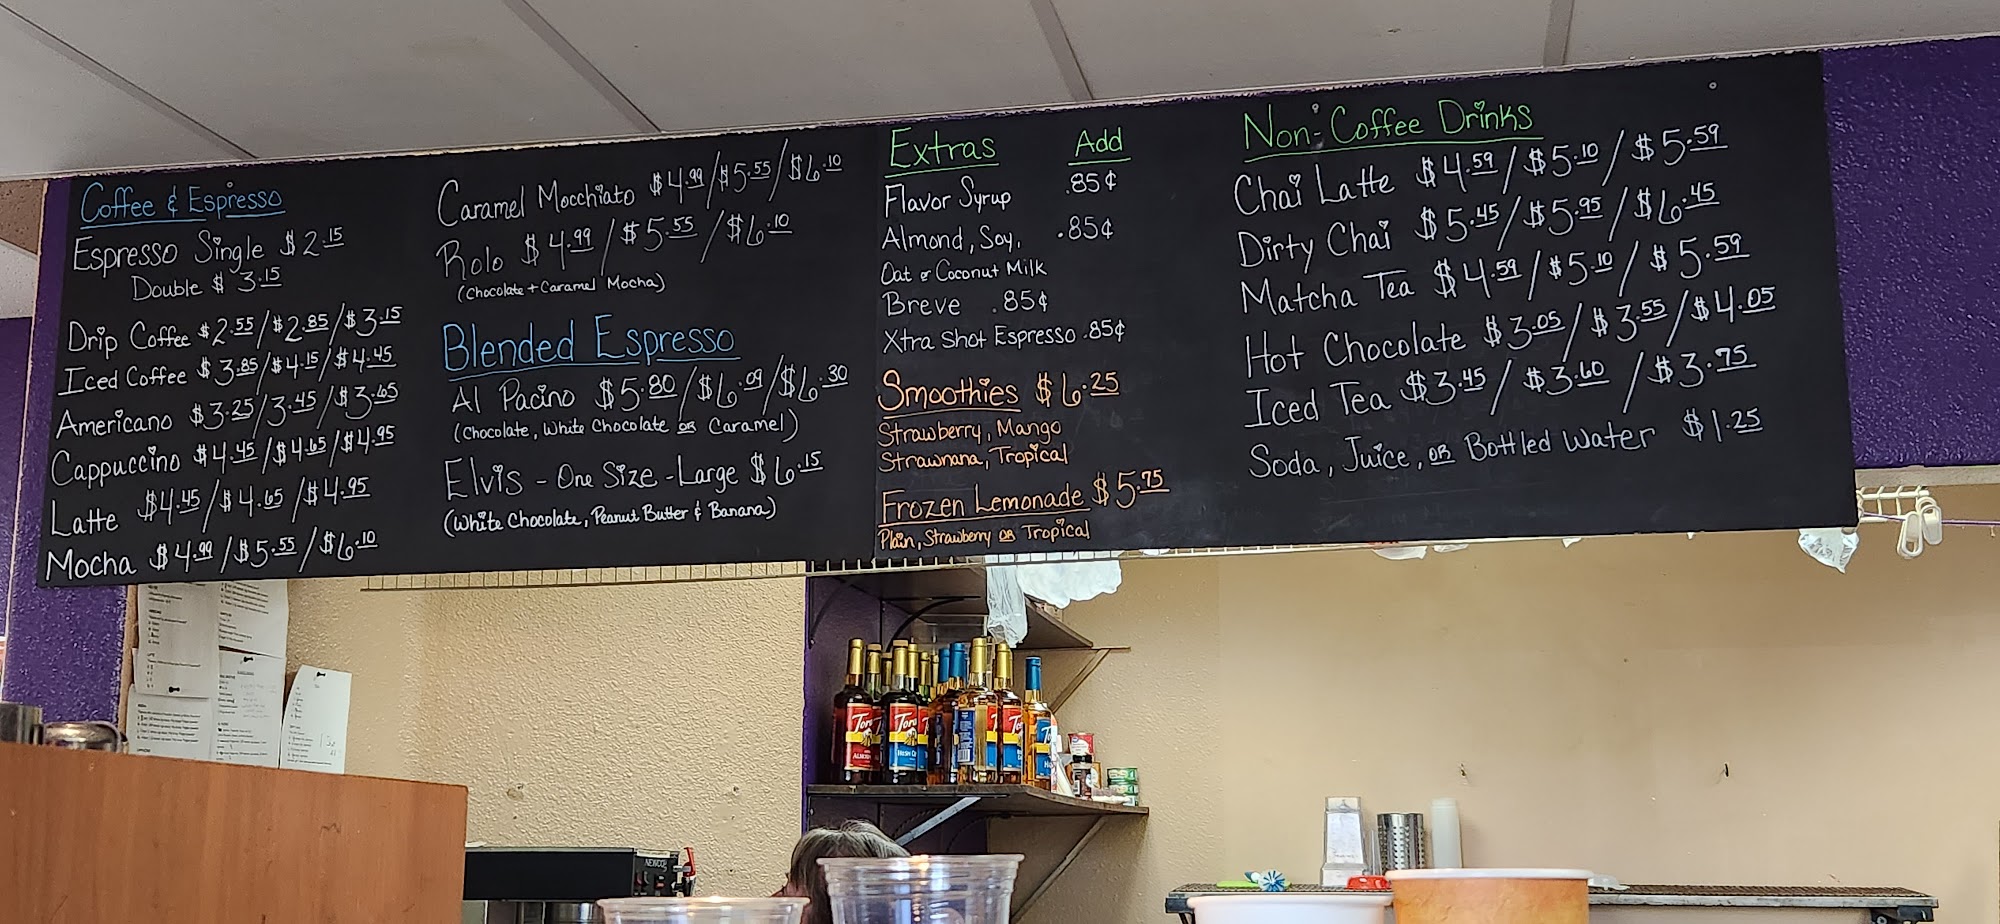 Coffee & Espresso
Espresso Single $2.15
Double $3.15
Drip Coffee $2.55/$2.85/$3.15
Iced Coffee $3.85/$4.15/$4.45
Americano $3.25/3.45/$3.65
Cappuccino $4.45/$4.65/$4.95
Latte $4.45/$4.65/$4.95
Mocha $4.99/$5.55/$6.10
Caramel Mocchiato $4.99/$5.55/$6.10
Rolo $4.99/$5.55/$6.10
(Chocolate + Caramel Mocha)
Blended Espresso
Al Pacino $5.80/$6.09/$6.30
(Chocolate, White Chocolate OR Caramel)
Elvis - One Size - Large $6.15
(White Chocolate, Peanut Butter & Banana)
Extras Add
Flavor Syrup .85¢
Almond, Soy, .85¢
Oat or Coconut Milk
Breve .85¢
Xtra Shot Espresso .85¢
Smoothies $6.25
Strawberry, Mango
Strawnana, Tropical
Frozen Lemonade $5.75
Plain, Strawberry OR Tropical
Non-Coffee Drinks
Chai Latte $4.59/$5.10/$5.59
Dirty Chai $5.45/$5.95/$6.45
Matcha Tea $4.59/$5.10/$5.59
Hot Chocolate $3.05/$3.55/$4.05
Iced Tea $3.45/$3.60/$3.75
Soda, Juice, OR Bottled Water $1.25